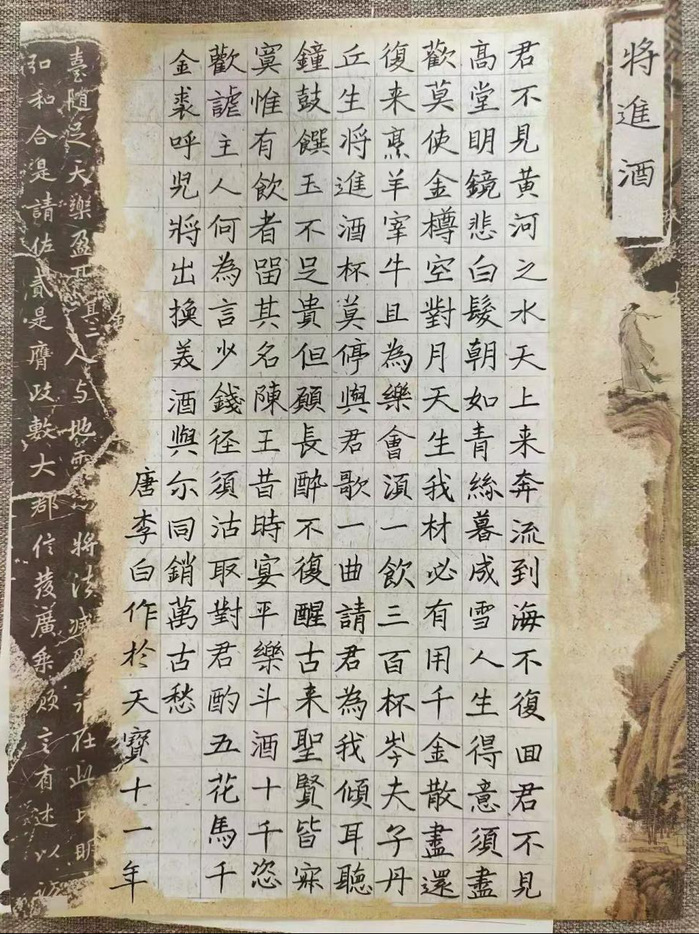 將進酒
君不見黃河之水天上来奔流到海不復囬君不見
高堂明鏡悲白髮朝如青絲暮成雪人生得意須盡
歡莫使金樽空對月天生我材必有用千金散盡還
復来烹羊宰牛且為樂會湏一飲三百杯岑夫子丹
丘生将進酒杯莫停與君歌一曲請君為我傾耳聽
鐘鼓饌玉不足貴但願長醉不復醒古来聖賢皆寂
寞惟有飲者留其名陳王昔時宴平樂斗酒十千恣
歡謔主人何為言少錢径須沽取對君酌五花馬千
金裘呼児將出換美酒與尔同銷萬古愁
唐李白作於天寶十一年
和合是請佐貳是膺政敷大郡信茂廣乘言有述以